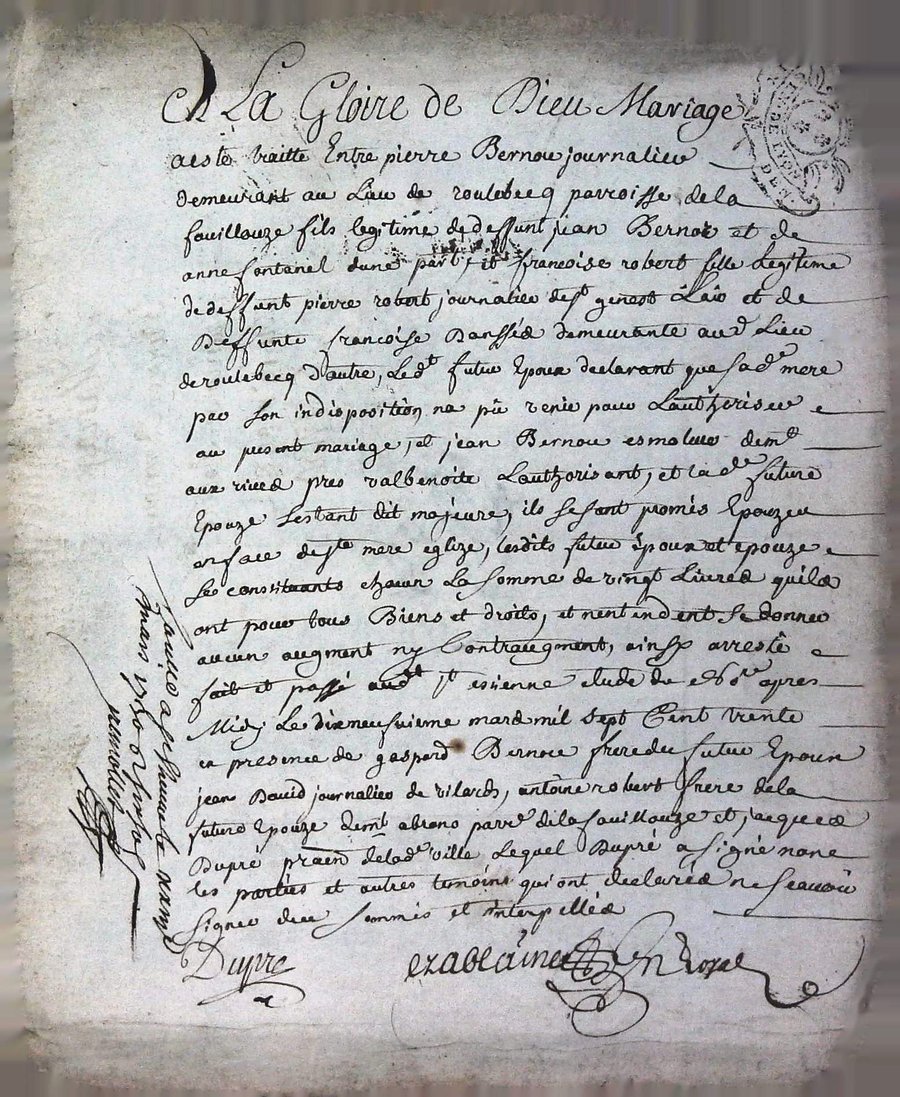 A La Gloire de Dieu Mariage
aesté traitté Entre pierre Bernou journalieu
demeurant au Lieu de roulebecq parroisse dela
fouillouze fils legitime dedeffunt jean Bernou et de
anne fontanel dune part, et francoise robert fille Legitime
de deffunt pierre robert journalier de st genest Laiv et de
Deffunte francoise demeurante aud Lieu
de roulebecq d'autre, Ledt futur Epoux declarant que sa de mere
par son indisposition, na pû venir pour Lauthoriser
au present mariage, et jean Bernou esmoleur demt
aux rives pres valbenoite Lauthorisant, et la de future
Epouze sestant dit majeure, ils se sont promis Epouzer
en face de ste mere eglize, lesdits futur époux et epouze
se constituants chacun La somme de vingt Livres quils
ont pour tous Biens et droits, et nentendent se donner
aucun augment ny Contraugment, ainsy arresté
fait et passé audt st estienne etude de apres
Midy Le dixneufvieme mars mil sept Cent trente
en presence de gaspard Bernou frere du futur Epoux
jean David journalier de vilards, antoine robert frere dela
future Epouze demt abrans parre. dela fouillouze et jacques
Dupré delade ville Lequel Dupré a signé none
les parties et autres temoins qui ont declarés ne scavoir
signer de ce sommés et interpellés
Dupré
mars 1730